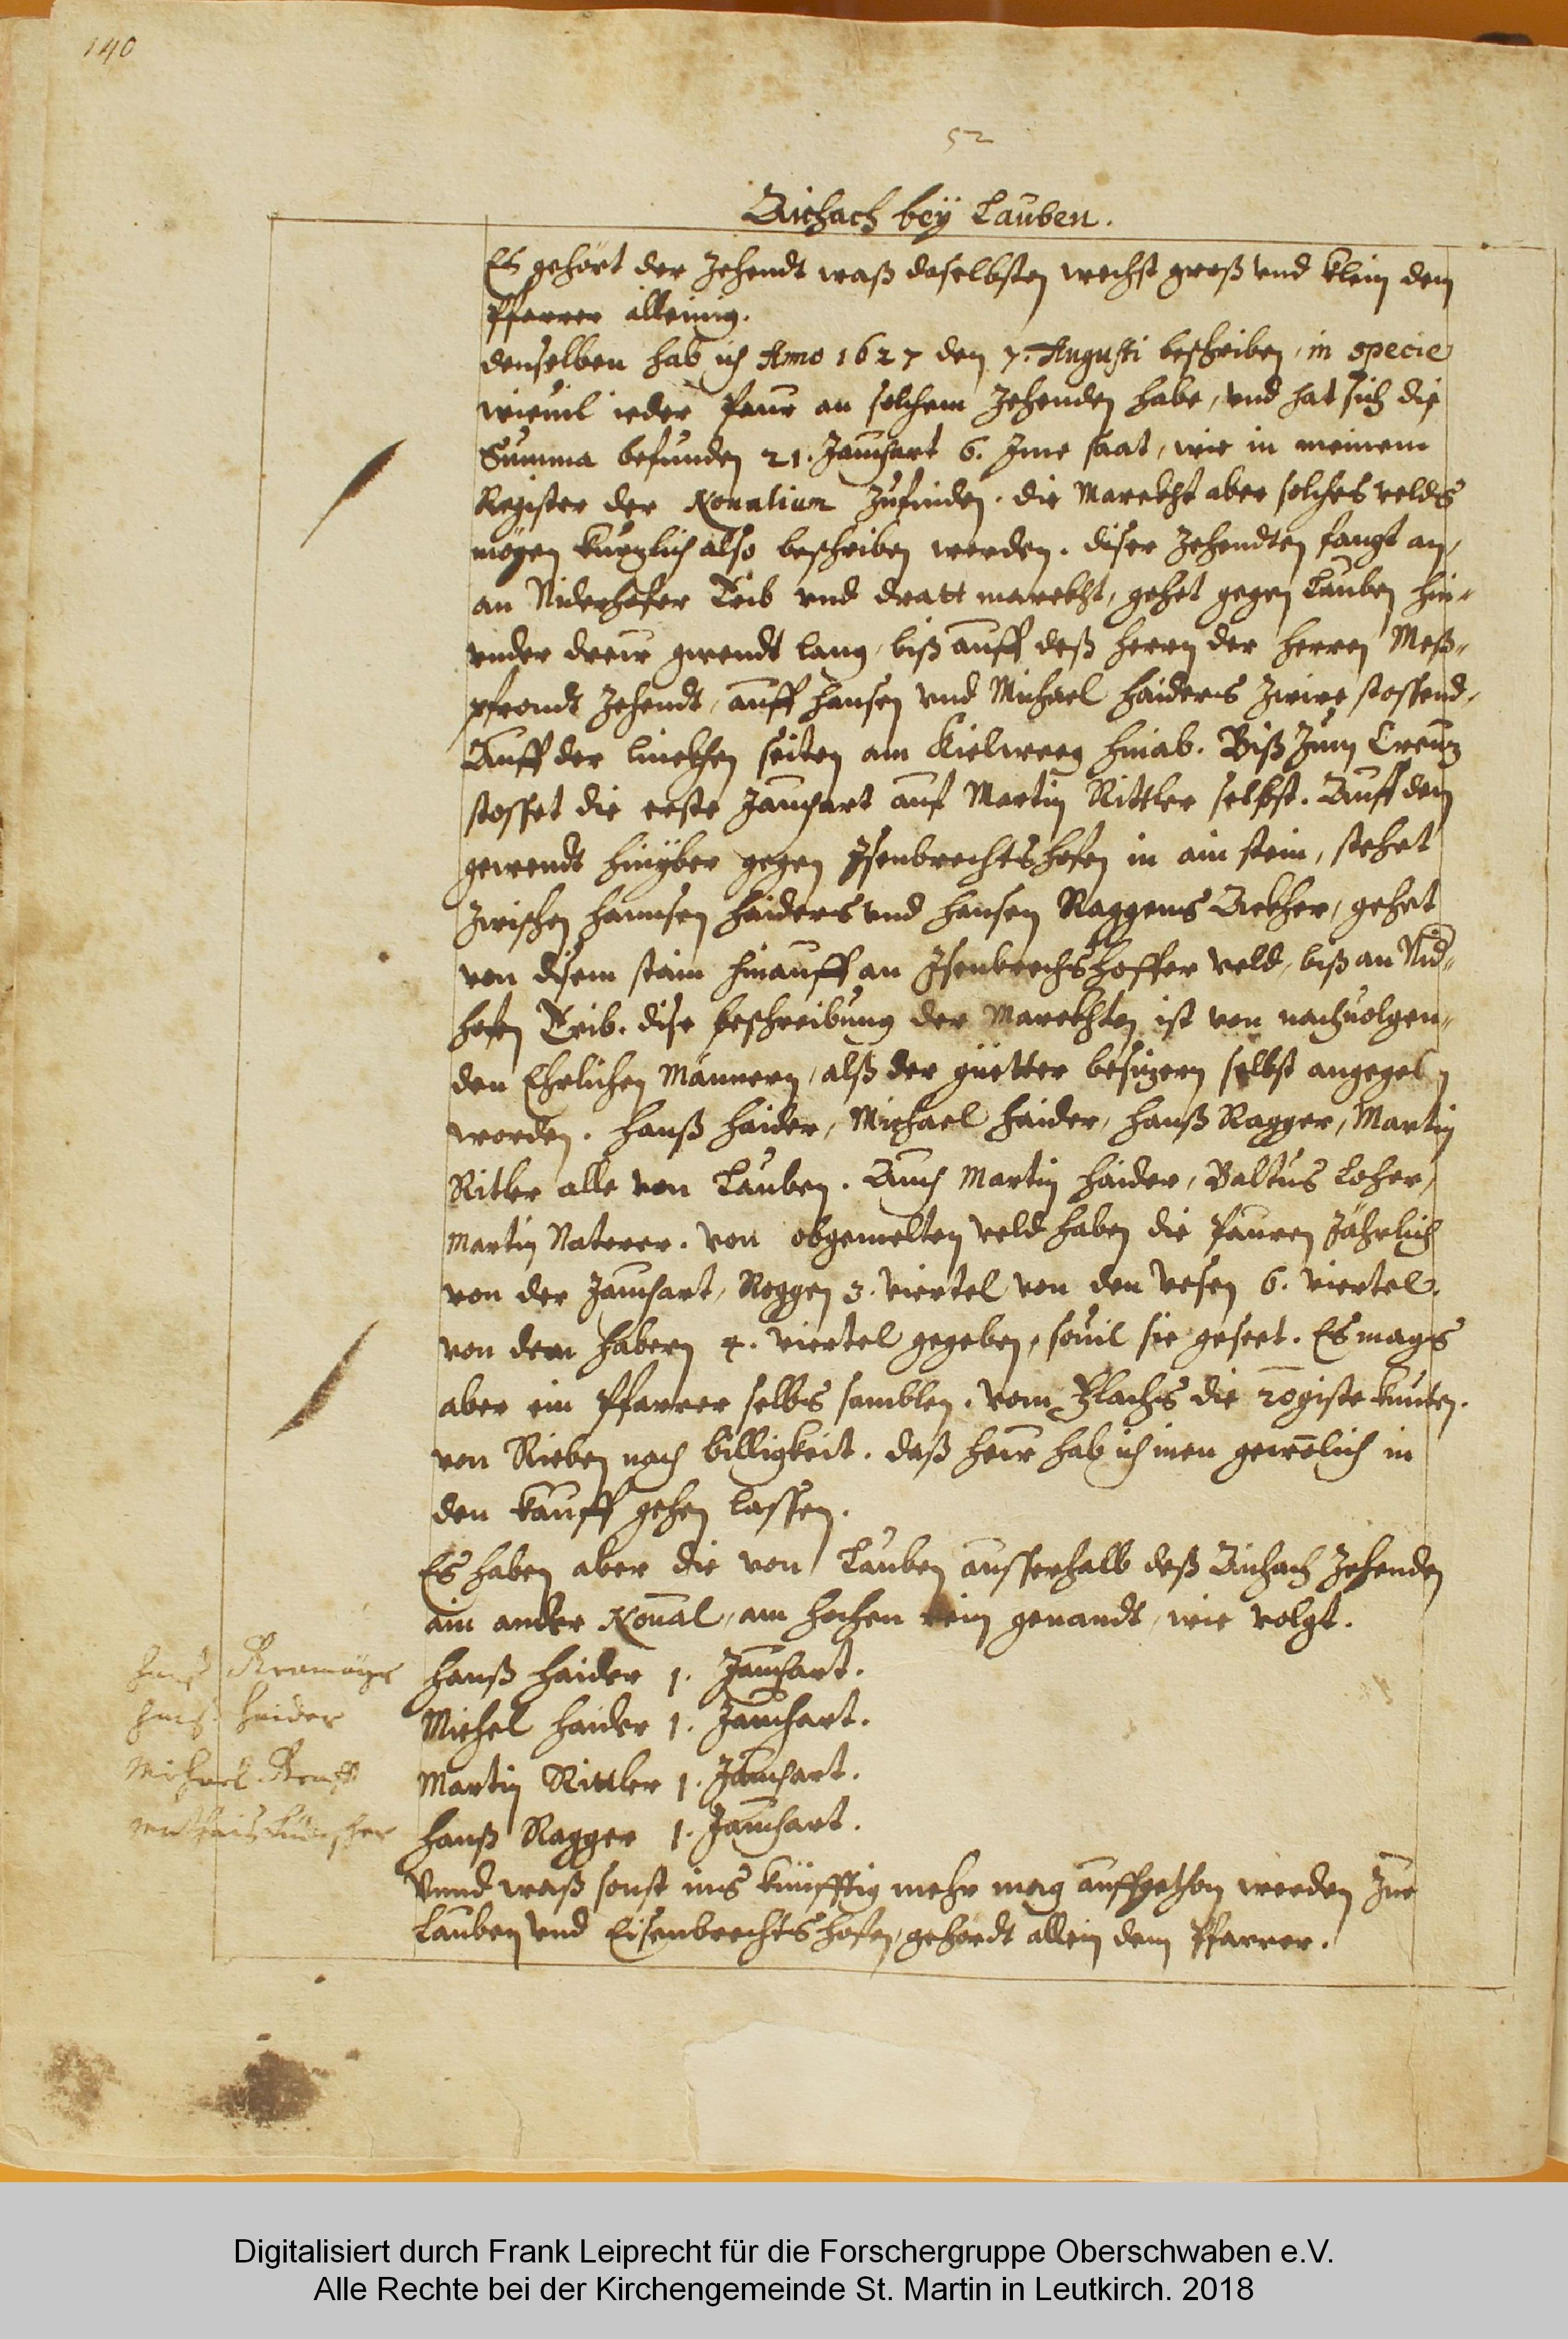 140
52
Aichach beÿ Lauben.
Es gehört der Zehendt waß daselbsten wechst groß vnd klein dem
Pfarrer alleinig.
denselben hab ich Anno 1627 den 7. Augusti beschriben, in specie
wieuil ieder Paur an solchem Zehenden habe, vnd hat sich die
Summa befunden 21. Jauchart 6. Ime saat, wie in meinem
Register der Noualium zufinden. die Marckht aber solches velds
mögen kurzlich also beschriben werden. diser Zehendten fangt an,
an Niderhofer Trib vnd dratt marckht, gehet gegen Lauben hin-
vnder dreir gwendt lang, biß auff deß herrn der herren Meß-
pfrondt Zehendt, auff hansen vnd Michael Haiders zwire stossend,
Auff der linckhen seiten am Kielweeg hinab. Biß zum Creuz
stosset die erste Jauchart auf Martin Rittler selbst. Auff den
gewendt hinyber gegen Isenbrechtshofen in ain stein, stehet
zwischen hannsen Haiders vnd hansen Raggens Ackher, gehet
von disem stain hinauff an Isenbrechshoffer veld, biß an Nid-
hofen Trib. dise beschreibung der Marckhten ist von nachuolgen-
den Ehrlichen Männern, alß der güetter besizern selbst angegeben
worden. Hanß Haider, Michael Haider, Hanß Ragger, Martin
Ritler alle von Lauben. Auch Martin Haider, Baltus Locher,
Martin Naterer. von obgemelten veld haben die Pauren Jährlich
von der Jauchart, Roggen 3. viertel von den vesen 6. viertel.
von dem Habern 4. viertel gegeben, souil sie geseet. Es mags
aber ein Pfarrer selbs samblen. vom Flachs die
von Rieben nach billigkeit. daß heir hab ich inen gewolich in
den kauff gehen lassen.
Es haben aber die von Lauben ausserhalb deß Aichach Zehenden
ain ander Noual, am hochen rein genandt, wie volgt.
Hanß Haider 1. Jauchart.
Michel Haider 1. Jauchart.
Martin Rittler 1. Jauchart.
Hanß Ragger 1. Jauchart.
Hanß Haider
Michael
Vnnd waß sonst ins künfftig mehr mag auffgethon werden zue
Lauben vnd Eisenbrechtshofen, gehördt allein dem Pfarrer.
Digitalisiert durch Frank Leiprecht für die Forschergruppe Oberschwaben e.V.
Alle Rechte bei der Kirchengemeinde St. Martin in Leutkirch. 2018